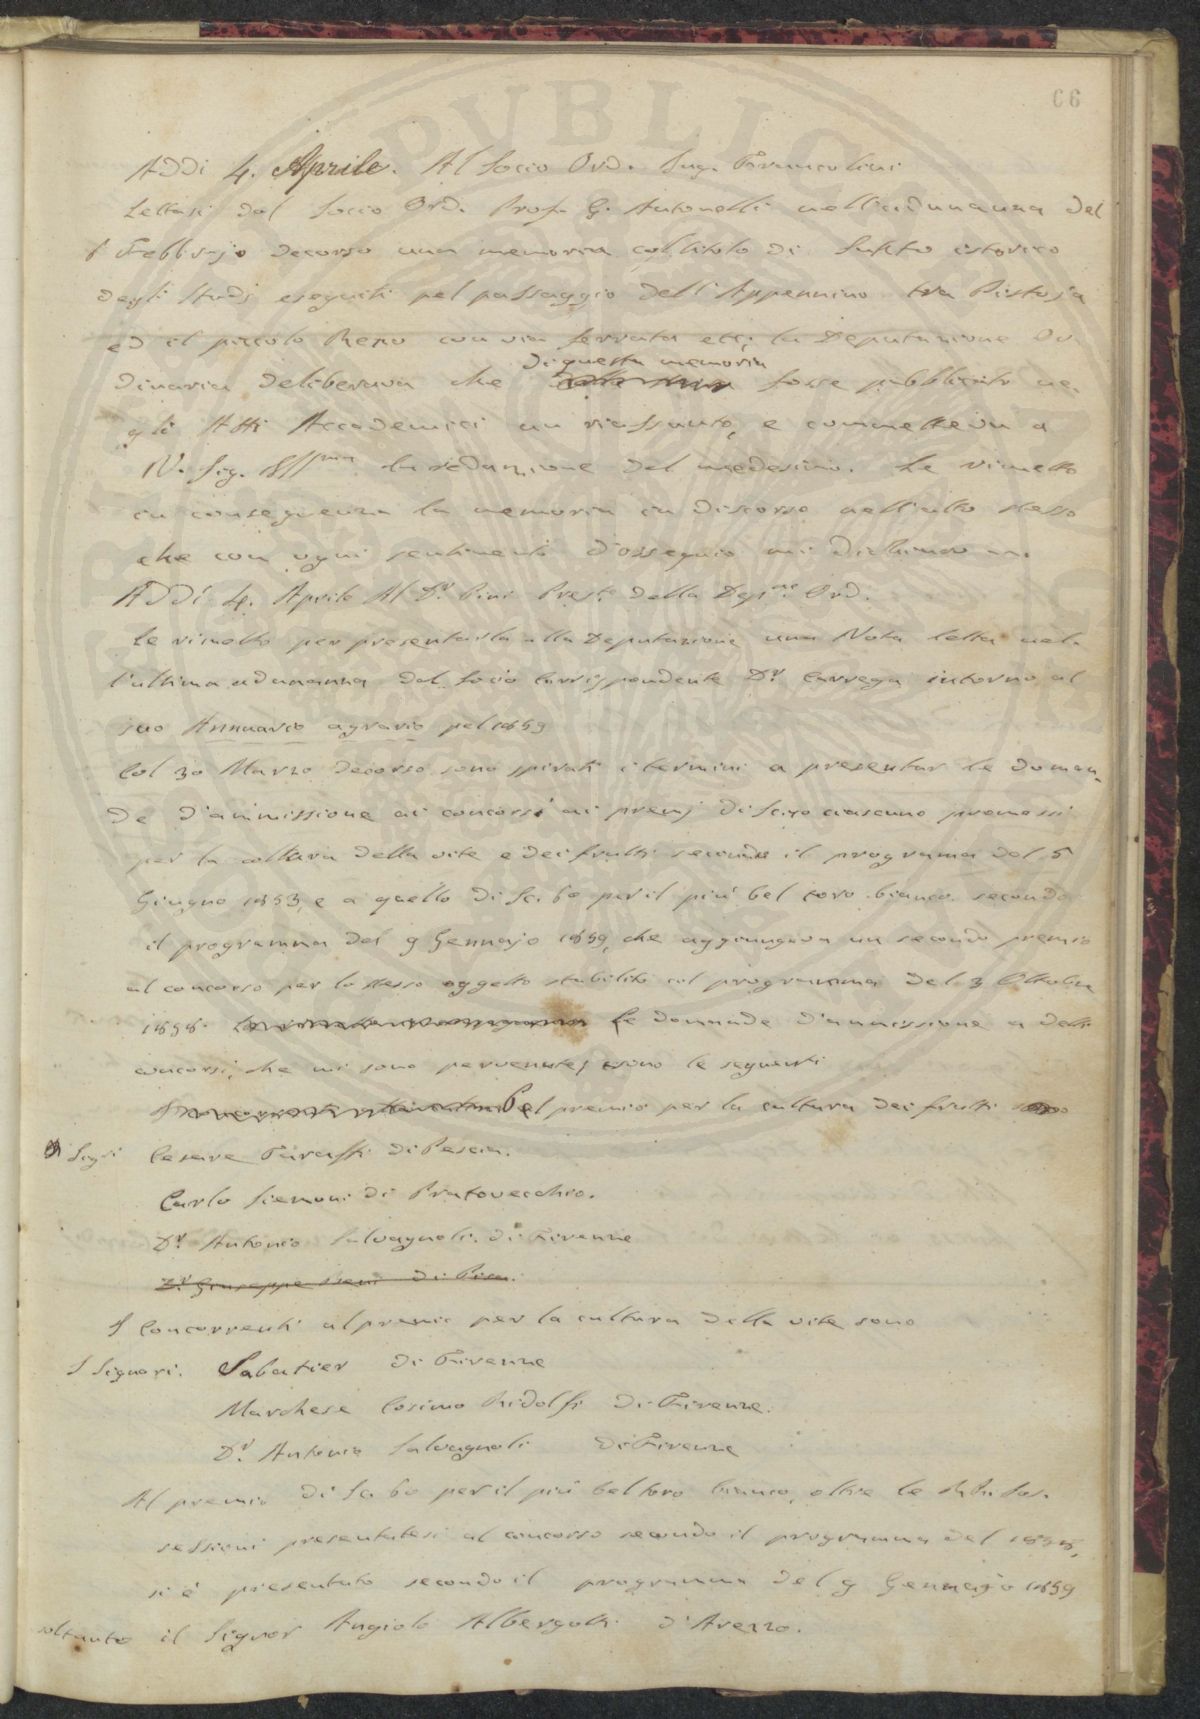 66
Addì 4. Aprile. Al Socio Ord. Ing. Franceolini
Lettasi dal Socio Ord. Prof. G. Antonelli nell'adunanza del
6 Febbrajo decorso una memoria col titolo di Sunto istorico
degli Studj eseguiti pel passaggio dell'Appennino tra Pistoja
ed il piccolo Reno con via ferrata etc; la Deputazione Or
dinaria deliberava che di questa memoria fosse pubblicato ne-
gli Atti Accademici un riassunto, e commetteva a
V. Sig. Illma la redazione del medesimo. Le rimetto
in conseguenza la memoria in discorso nell'atto stesso
che con ogni sentimento d'ossequio mi dichiaro
Addì 4. Aprile Al Dr. Pini Prest. della Depne. Ord.
Le rimetto per presentarla alla Deputazione una Nota letta nel-
l'ultima adunanza dal Socio Corrispondente Dr. Carrega intorno al
suo Annuario agrario pel 1859
Col 30 Marzo decorso sono spirati i termini a presentar le doman-
de d'ammissione ai concorsi ai premj di ciascuno promessi
per la coltura della vite e dei frutti secondo il programma del 5
Giugno 1853, e a quello di Sc. 60 per il più bel toro bianco secondo
il programma del 9 Gennajo 1859, che aggiungeva un secondo premio
al concorso per lo stesso oggetto stabilito col programma del 3 Ottobre
1858. Le domande d'ammissione a detti
concorsi, che mi sono pervenute, sono le seguenti
Pel premio per la cultura dei frutti
Sigri Cesare Puraffi di Pescia.
Carlo Siemoni di Pratovecchio.
Dr. Antonio Salvagnoli di Firenze
Dr. Giuseppe di Pisa.
I Concorrenti al premio per la cultura della vite sono
I Signori. Sabatier di Firenze
Marchese Cosimo Ridolfi di Firenze.
Dr. Antonio Salvagnoli di Firenze
Al premio di Sc. 60 per il più bel toro bianco, oltre le
sessioni presentatesi al concorso secondo il programma del 1858,
si è presentato secondo il programma del 9 Gennajo 1859
soltanto il Signor Angiolo Albergotti d'Arezzo.